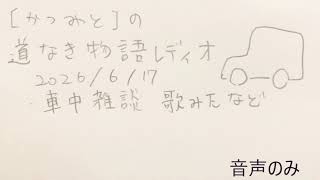 [かつみと]の
道なき物語レディオ
2026/6/17
・車中雑談 歌みたなど
音声のみ